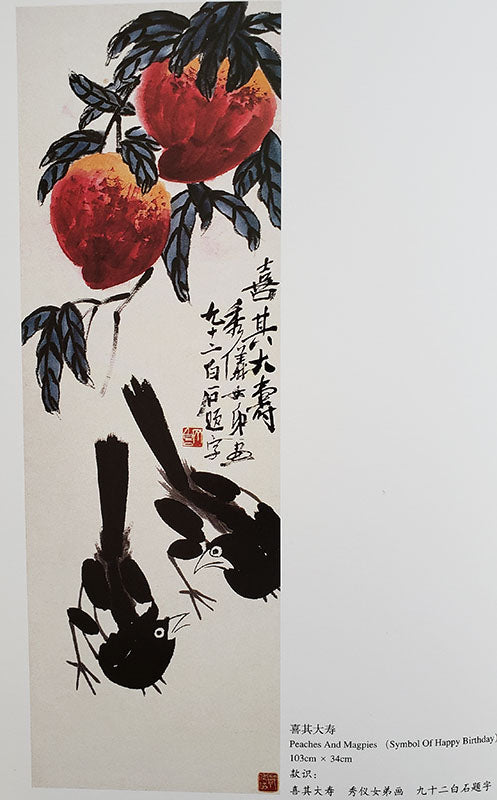 喜其大壽
秀儀女弟画
九十二白石题字
喜其大寿
Peaches And Magpies (Symbol Of Happy Birthday)
103cm × 34cm
款识：
喜其大寿 秀仪女弟画 九十二白石题字